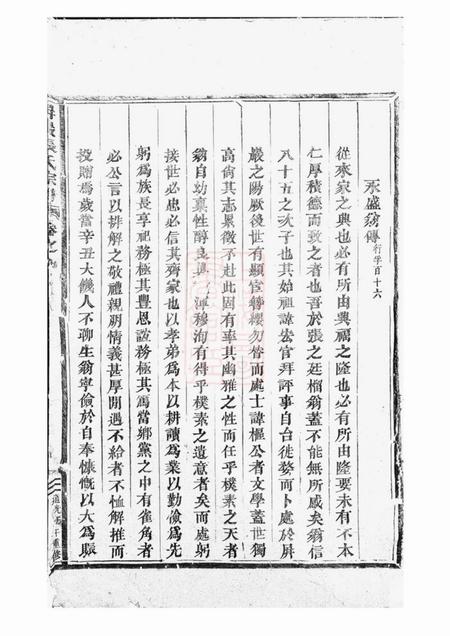 永盛翁傳 行孚百十六
從來家之興也必有所由興福之隆也必有所由隆要未有不本
仁厚積德而致之者也吾於張之廷樞翁蓋不能無所感矣翁信
八十五之次子也其始祖諱宏官拜評事自台徙婺而卜處於屏
巖之陽厥後世有顯官簪纓勿替而處士諱樞公者文學蓋世獨
高尚其志累徵不赴此固有率其幽雅之性而任乎樸素之天者
翁自幼稟性醇良 渾穆洵有得乎樸素之遺意者矣而處躬
接世必忠必信其齊家也以孝弟為本以耕讀為業以勤儉為先
躬為族長享祀務極其豐恩誼務極其篤當鄉黨之中有雀角者
必公言以排解之敬禮親朋情義甚厚閒遇不給者不恤解推而
投贈焉歲當辛丑大饑人不聊生翁寧儉於自奉慷慨以大為賑
張氏宗譜 卷之
道光 重修